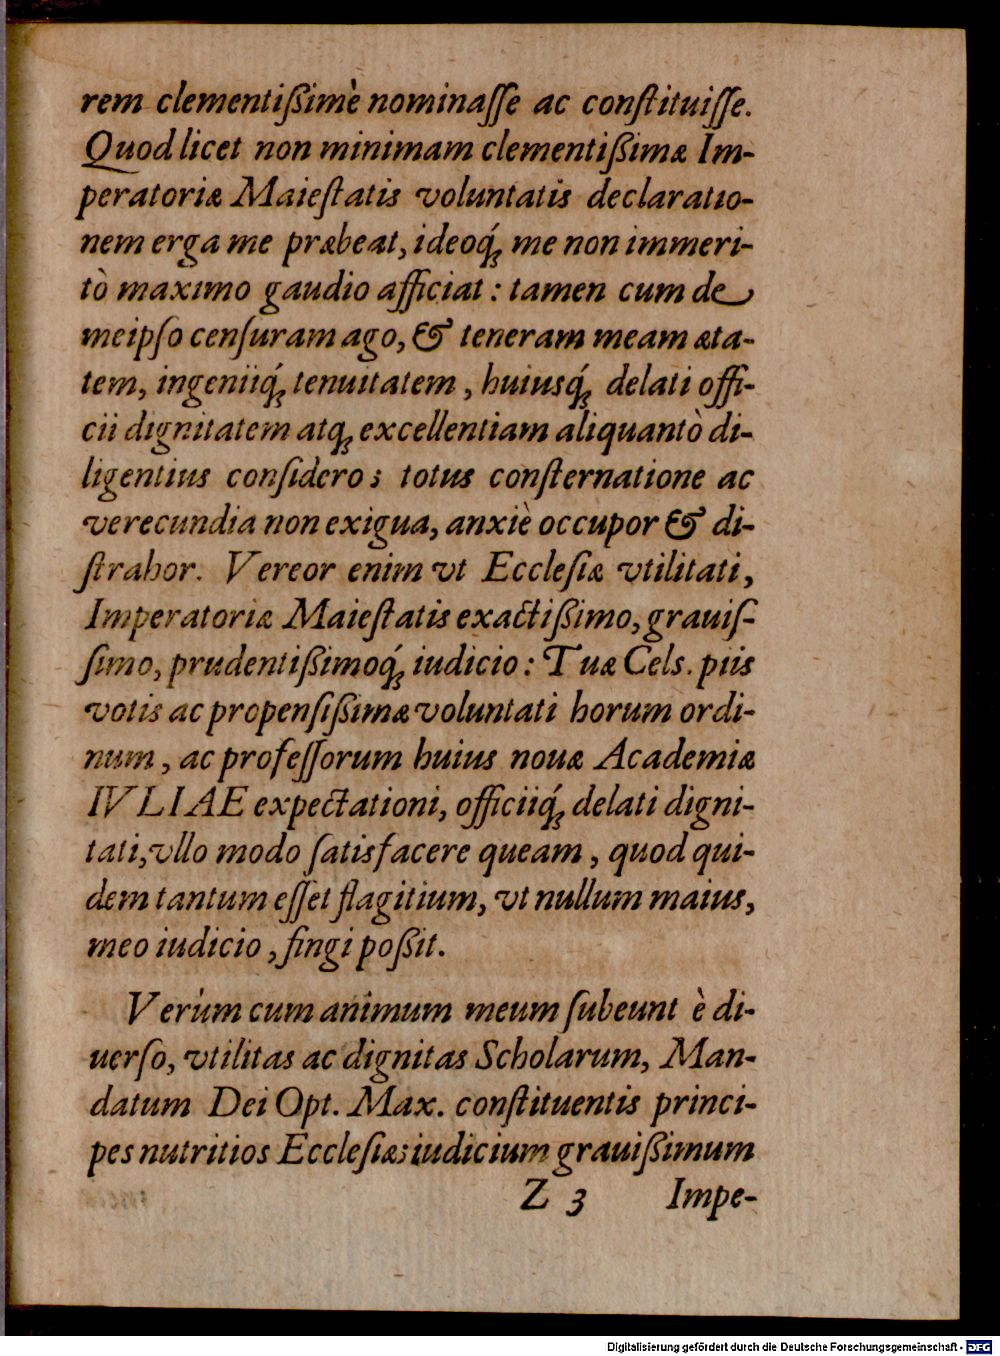 rem clementißimè nominaſſe ac conſtituiſſe.
Quod licet non minimam clementißimæ Im-
peratoriæ Maieſtatis voluntatis declaratio-
nem erga me præbeat, ideoq́ꝫ me non immeri-
tò maximo gaudio afficiat : tamen cum de
meipſo cenſuram ago, & teneram meam æta-
tem, ingeniiq́ꝫ tenuitatem, huiusq́ꝫ delati offi-
cii dignitatem atqꝫ excellentiam aliquantò di-
ligentius conſidero; totus conſternatione ac
verecundia non exigua, anxiè occupor & di-
ſtrahor. Vereor enim vt Eccleſiæ vtilitati,
Imperatoriæ Maieſtatis exactißimo, grauiſ-
ſimo, prudentißimoq́ꝫ iudicio : Tuæ Cels. piis
votis ac propenſißimæ voluntati horum ordi-
num, ac profeſſorum huius nouæ Academiæ
IVLIAE expectationi, officiiq́ꝫ delati digni-
tati, vllo modo ſatisfacere queam, quod qui-
dem tantum eſſet flagitium, vt nullum maius,
meo iudicio, fingi poßit.
Verùm cum animum meum ſubeunt è di-
uerſo, vtilitas ac dignitas Scholarum, Man-
datum Dei Opt. Max. conſtituentis princi-
pes nutritios Eccleſiæ; iudicium grauißimum
Z 3 Impe-
Digitalisierung gefördert durch die Deutsche Forschungsgemeinschaft - DFG